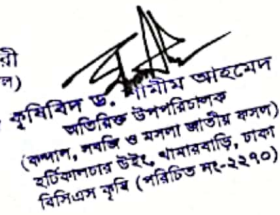 রী
ল)
কৃষিবিদ ড. শামীম আহমেদ
অতিরিক্ত উপপরিচালক
(কন্দাল, সবজি ও মসলা জাতীয় ফসল)
হর্টিকালচার উইং, খামারবাড়ি, ঢাকা
বিসিএস কৃষি (পরিচিত নং-২২৯০)